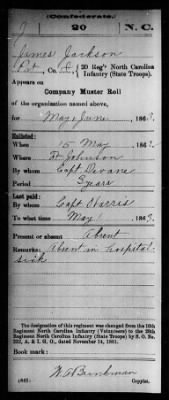 (Confederate.)
J 20 N.C.
James Jackson
Pvt, Co. I, 20 Reg't North Carolina
Infantry (State Troops).
Appears on
Company Muster Roll
of the organization named above,
for May & June, 186
Enlisted:
When 15 May, 186
Where Ft Johnson
By whom Capt. Devane
Period 3 years
Last paid:
By whom Capt Harris
To what time May 1, 1863.
Present or absent Absent
Remarks: Absent in hospital
sick
The designation of this regiment was changed from the 10th
Regiment North Carolina Infantry (Volunteers) to the 20th
Regiment North Carolina Infantry (State Troops) by S. O. No.
222, A. & I. G. O., dated November 14, 1861.
Book mark:
W A Brinkman
(642) Copyist.